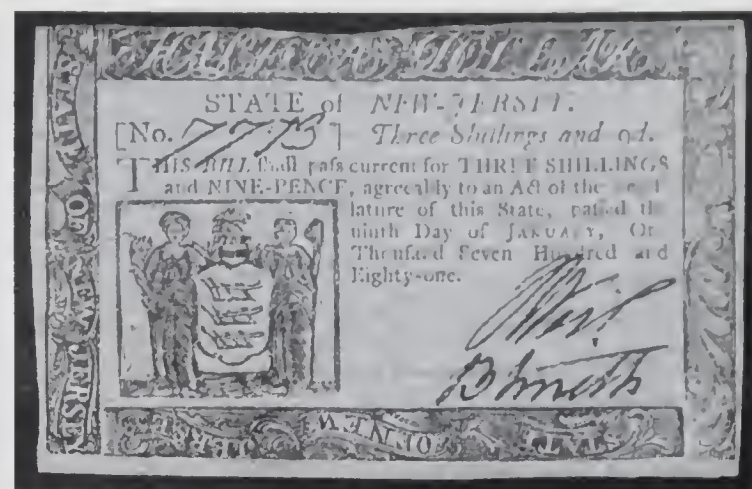 HALF A DOLLAR
STATE of NEW-JERSEY.
[No. 7773] Three Shillings and 9d.
THIS BILL shall pass current for THREE SHILLINGS
and NINE-PENCE, agreeably to an Act of the
lature of this State, passed the
ninth Day of JANUARY, One
Thousand Seven Hundred and
Eighty-one.
B Smith
STATE OF NEW JERSEY
STATE OF NEW JERSEY